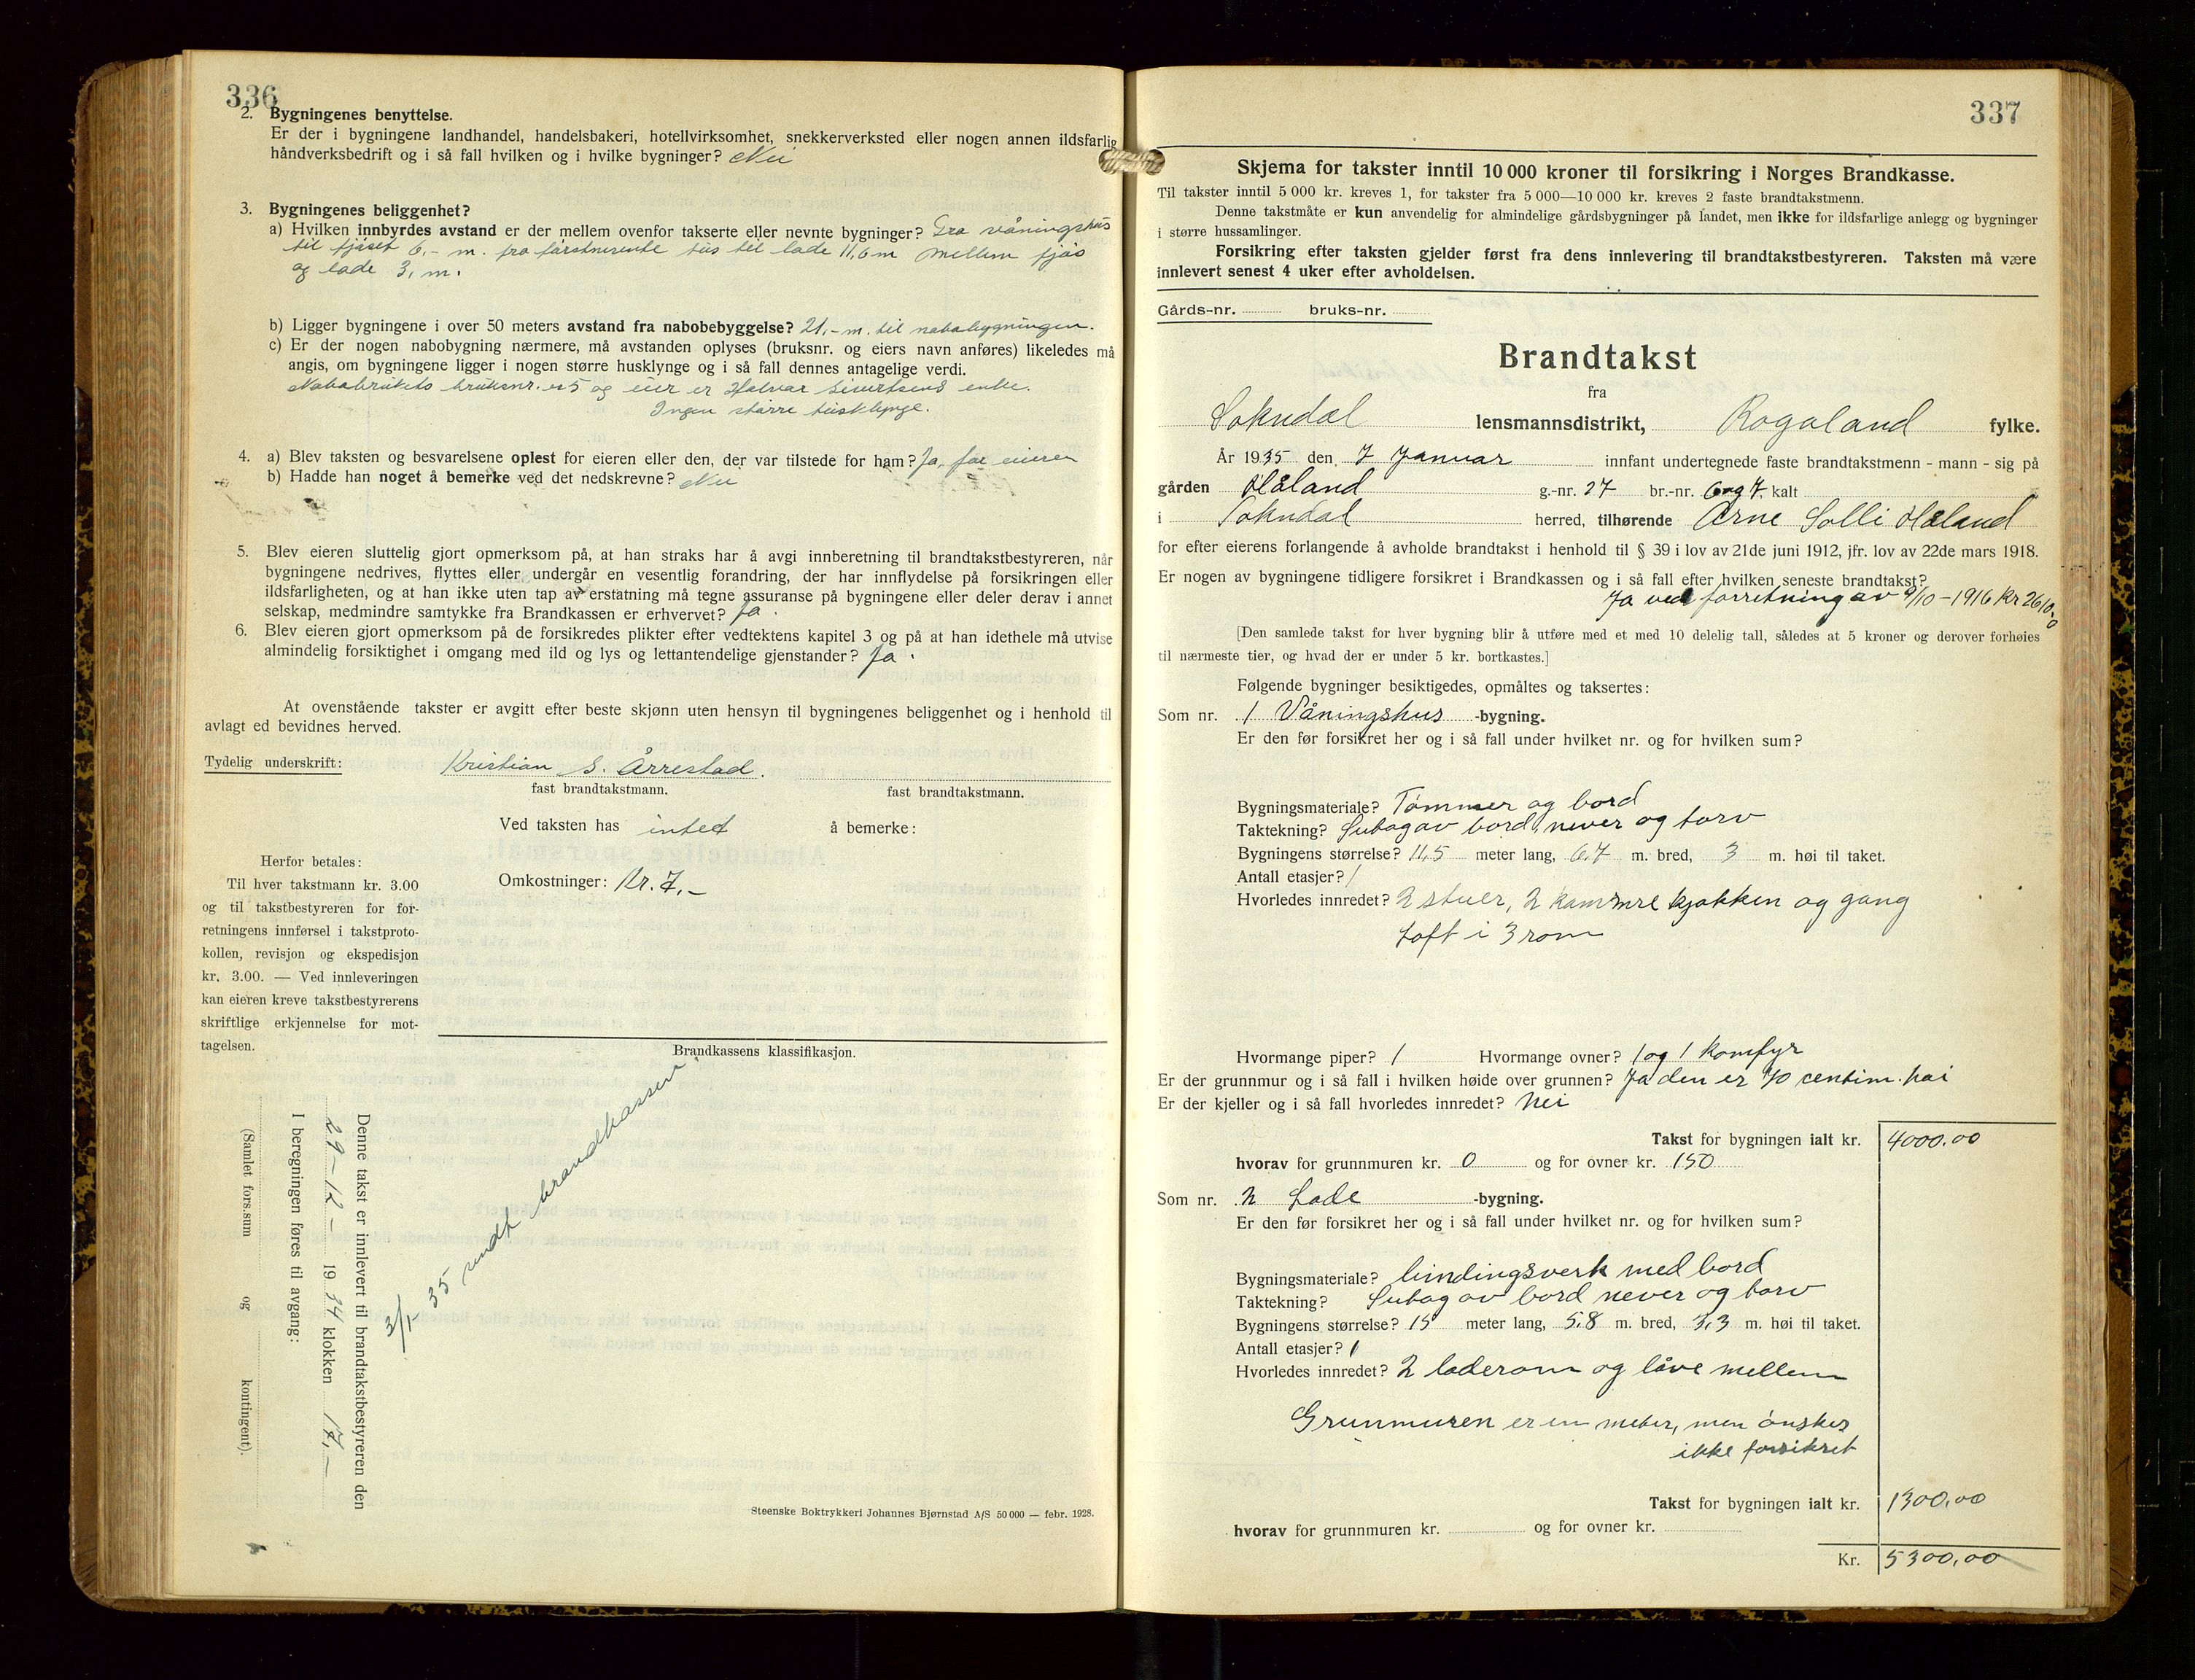 336
2. Bygningenes benyttelse.
Er der i bygningene landhandel, handelsbakeri, hotellvirksomhet, snekkerverksted eller nogen annen ildsfarlig
håndverksbedrift og i så fall hvilken og i hvilke bygninger? Nei
3. Bygningenes beliggenhet?
a) Hvilken innbyrdes avstand er der mellem ovenfor takserte eller nevnte bygninger? Fra våningshus
til fjøset 6,- m. fra førstnevnte hus til lade 11,6 m mellem fjøs
og lade 3, m.
b) Ligger bygningene i over 50 meters avstand fra nabobebyggelse? 21,- m. til nabobygningen.
c) Er der nogen nabobygning nærmere, må avstanden oplyses (bruksnr. og eiers navn anføres) likeledes må
angis, om bygningene ligger i nogen større husklynge og i så fall dennes antagelige verdi.
Nabobrukets bruksnr. er 5 og eier er Halvar Sivertsens enke.
Ingen større husklynge.
4. a) Blev taksten og besvarelsene oplest for eieren eller den, der var tilstede for ham? Ja, for eieren
b) Hadde han noget å bemerke ved det nedskrevne? Nei
5. Blev eieren sluttelig gjort opmerksom på, at han straks har å avgi innberetning til brandtakstbestyreren, når
bygningene nedrives, flyttes eller undergår en vesentlig forandring, der har innflydelse på forsikringen eller
ildsfarligheten, og at han ikke uten tap av erstatning må tegne assuranse på bygningene eller deler derav i annet
selskap, medmindre samtykke fra Brandkassen er erhvervet? Ja.
6. Blev eieren gjort opmerksom på de forsikredes plikter efter vedtektens kapitel 3 og på at han idethele må utvise
almindelig forsiktighet i omgang med ild og lys og lettantendelige gjenstander? Ja.
At ovenstående takster er avgitt efter beste skjønn uten hensyn til bygningenes beliggenhet og i henhold til
avlagt ed bevidnes herved.
Tydelig underskrift: Kristian S. Årrestad.
fast brandtakstmann. fast brandtakstmann.
Ved taksten has intet å bemerke:
Omkostninger: Kr. 7,-
Herfor betales:
Til hver takstmann kr. 3.00
og til takstbestyreren for for-
retningens innførsel i takstproto-
kollen, revisjon og ekspedisjon
kr. 3.00. — Ved innleveringen
kan eieren kreve takstbestyrerens
skriftlige erkjennelse for mot-
tagelsen.
Brandkassens klassifikasjon.
3/1- 35 sendt brandkassen
Denne takst er innlevert til brandtakstbestyreren den
29-12- 1934 klokken 17,-
I beregningen føres til avgang:
(Samlet fors.sum og kontingent).
Steenske Boktrykkeri Johannes Bjørnstad A/S 50 000 — febr. 1928.
337
Skjema for takster inntil 10 000 kroner til forsikring i Norges Brandkasse.
Til takster inntil 5 000 kr. kreves 1, for takster fra 5 000—10 000 kr. kreves 2 faste brandtakstmenn.
Denne takstmåte er kun anvendelig for almindelige gårdsbygninger på landet, men ikke for ildsfarlige anlegg og bygninger
i større hussamlinger.
Forsikring efter taksten gjelder først fra dens innlevering til brandtakstbestyreren. Taksten må være
innlevert senest 4 uker efter avholdelsen.
Gårds-nr. bruks-nr.
Brandtakst
fra
Sokndal lensmannsdistrikt, Rogaland fylke.
År 1935 den 7 Januar innfant undertegnede faste brandtakstmenn - mann - sig på
gården Håland g.-nr. 27 br.-nr. 6 og 7 kalt
i Sokndal herred, tilhørende Arne Solli Håland
for efter eierens forlangende å avholde brandtakst i henhold til § 39 i lov av 21de juni 1912, jfr. lov av 22de mars 1918.
Er nogen av bygningene tidligere forsikret i Brandkassen og i så fall efter hvilken seneste brandtakst?
Ja ved forretning av 9/10 - 1916 kr 2610.
[Den samlede takst for hver bygning blir å utføre med et med 10 delelig tall, således at 5 kroner og derover forhøies
til nærmeste tier, og hvad der er under 5 kr. bortkastes.]
Følgende bygninger besiktigedes, opmåltes og taksertes:
Som nr. 1 Våningshus -bygning.
Er den før forsikret her og i så fall under hvilket nr. og for hvilken sum?
Bygningsmateriale? Tømmer og bord
Taktekning? Sutag av bord, never og torv
Bygningens størrelse? 11,5 meter lang, 6,7 m. bred, 3 m. høi til taket.
Antall etasjer? 1
Hvorledes innredet? 2 stuer, 2 kammre kjøkken og gang
Loft i 3 rom
Hvormange piper? 1 Hvormange ovner? 1 og 1 komfyr
Er der grunnmur og i så fall i hvilken høide over grunnen? Ja den er 70 centim. høi
Er der kjeller og i så fall hvorledes innredet? Nei
Takst for bygningen ialt kr. 4000,00
hvorav for grunnmuren kr. 0 og for ovner kr. 150
Som nr. 2 Lade -bygning.
Er den før forsikret her og i så fall under hvilket nr. og for hvilken sum?
Bygningsmateriale? bindingsverk med bord
Taktekning? Sutag av bord never og torv
Bygningens størrelse? 15 meter lang, 5,8 m. bred, 3,3 m. høi til taket.
Antall etasjer? 1
Hvorledes innredet? 2 laderom og låve mellem
Grunmuren er en meter, men ønskes
ikke forsikret
Takst for bygningen ialt kr. 1300,00
hvorav for grunnmuren kr. og for ovner kr.
Kr. 5300,00